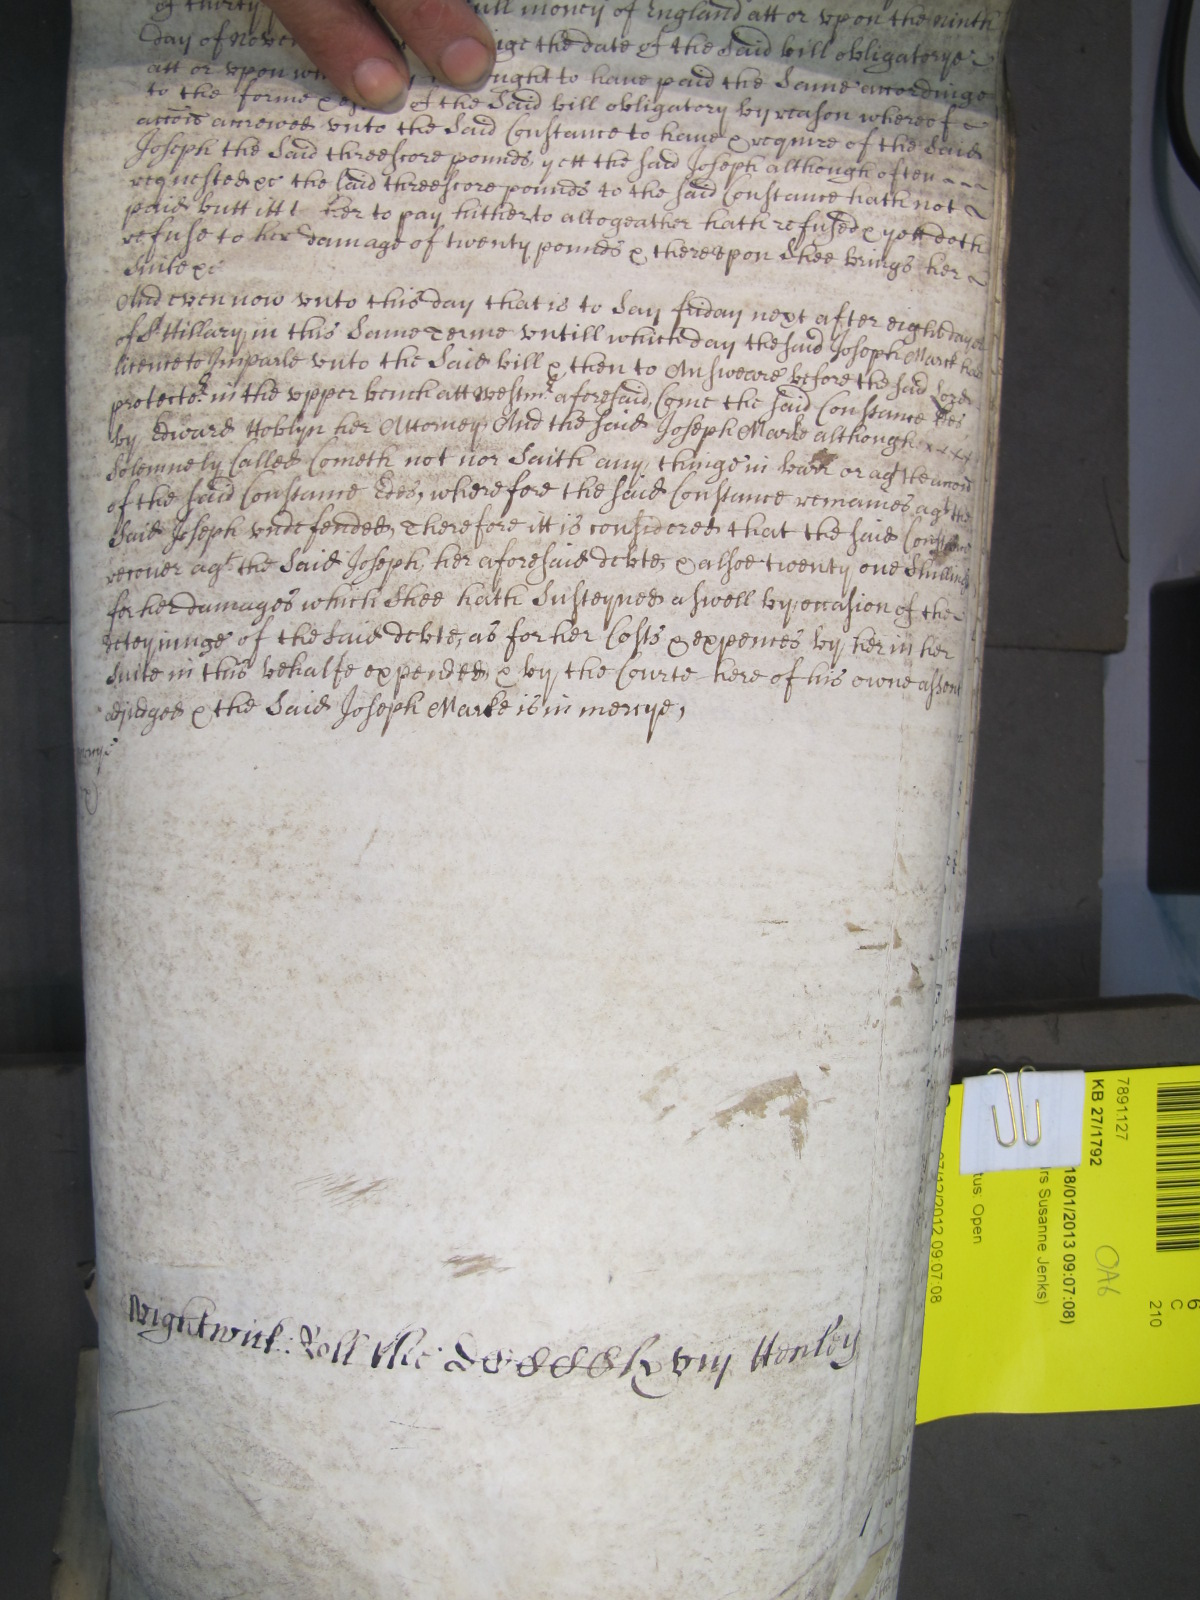 of thirty full money of England att or upon the ninth
day of Novem the date of the said bill obligatorye
att or upon ought to have paid the same accordinge
to the forme of the said bill obligatory by reason whereof
accon accrewed unto the said Constance to have & require of the said
Joseph the said threescore pounds, yett the said Joseph although often
requested &c the said threescore pounds to the said Constance hath not
paid butt itt her to pay hitherto altogeather hath refused & yett doth
refuse to her damage of twenty pounds & thereupon shee brings her
suite &c
And even now unto this day that is to say friday next after eight days
of St Hillary in this same Terme untill which day the said Joseph Marke had
licence to Imparle unto the said bill & then to Answeare before the said Lord
protector in the upper bench att Westmr aforesaid, Come the said Constance Edes
by Edward Hoblyn her Attorney, And the said Joseph Marke although
solemnely Called Cometh not nor saith any thinge in barr or agt the accon
of the said Constance Edes, wherefore the said Constance remaines agt the
said Joseph undefended, Therefore itt is considered that the said Constance
recover agt the said Joseph, her aforesaid debte, & alsoe twenty one shillings
for her damages which shee hath susteyned aswell by occasion of the
deteyninge of the said debte, as for her Costs & expences by her in her
suite in this behalfe expended, & by the Courte here of his owne assent
adjudged & the said Joseph Marke is in mercye,
mercye
Wightwick: Roll
by Henley
7891127
KB 27/1792
18/01/2013 09:07:08)
rs Susanne Jenks)
tus: Open
07/12/2012 09:07:08
OA6
6
C
210